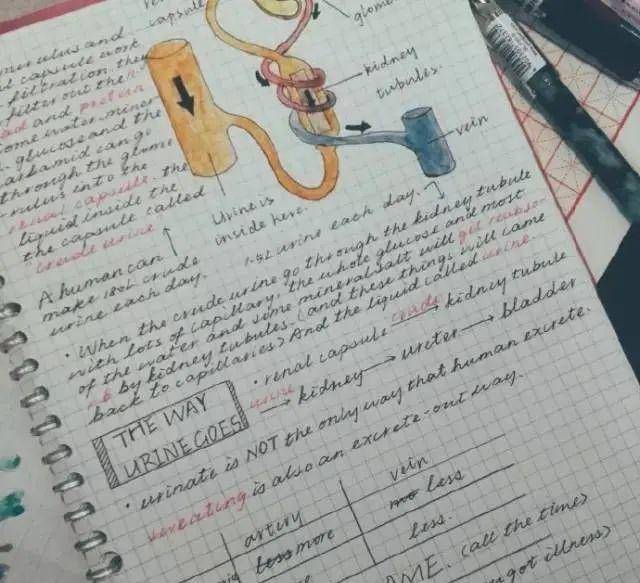 capsule
glome
kidney
tubules.
vein
ulus and
capsule work
filtration, the
filter out the
and protein
some water, miner
glucose and the
can go
through the glome
rulus into the
renal capsule. the
liquid inside the
the capsule called
"crude urine"
Urine is
inside here.
A human can
make 180L crude
urine each day.
1.5L urine each day.
· When the crude urine go through the kidney tubule
with lots of capillary, the whole glucose and most
of the water and some mineral salt will get reabso-
rb by kidney tubules. (and these things will came
back to capillaries) And the liquid called urine.
THE WAY
URINE GOES
· renal capsule crude urine → kidney tubule
→ kidney → ureter → bladder
· urinate is NOT the only way that human excrete.
sweating is also an excrete-out way.
artery vein
less more less
less.
(all the time)
got illness)